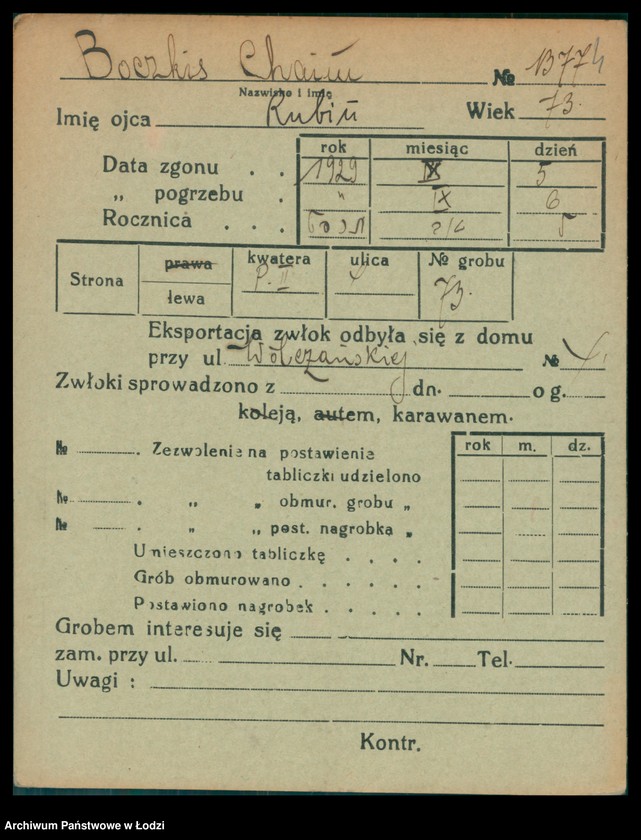 Boczkis Chaim № 13774
Nazwisko i imię
Imię ojca Rubin Wiek 73.
rok miesiąc dzień
Data zgonu . . 1929 IX 5
„ pogrzebu . " IX 6
Rocznica . . .
Strona prawa kwatera ulica № grobu
lewa P. II 73.
Eksportacja zwłok odbyła się z domu
przy ul. Wólczańskiej №
Zwłoki sprowadzono z dn. o g.
koleją, autem, karawanem.
rok m. dz.
№ . Zezwolenie na postawienie
tabliczki udzielono
№ . „ „ obmur. grobu „
№ . „ „ post. nagrobka „
Umieszczono tabliczkę . . . .
Grób obmurowano . . . . .
Postawiono nagrobek . . . .
Grobem interesuje się
zam. przy ul. Nr. Tel.
Uwagi :
Kontr.
Archiwum Państwowe w Łodzi